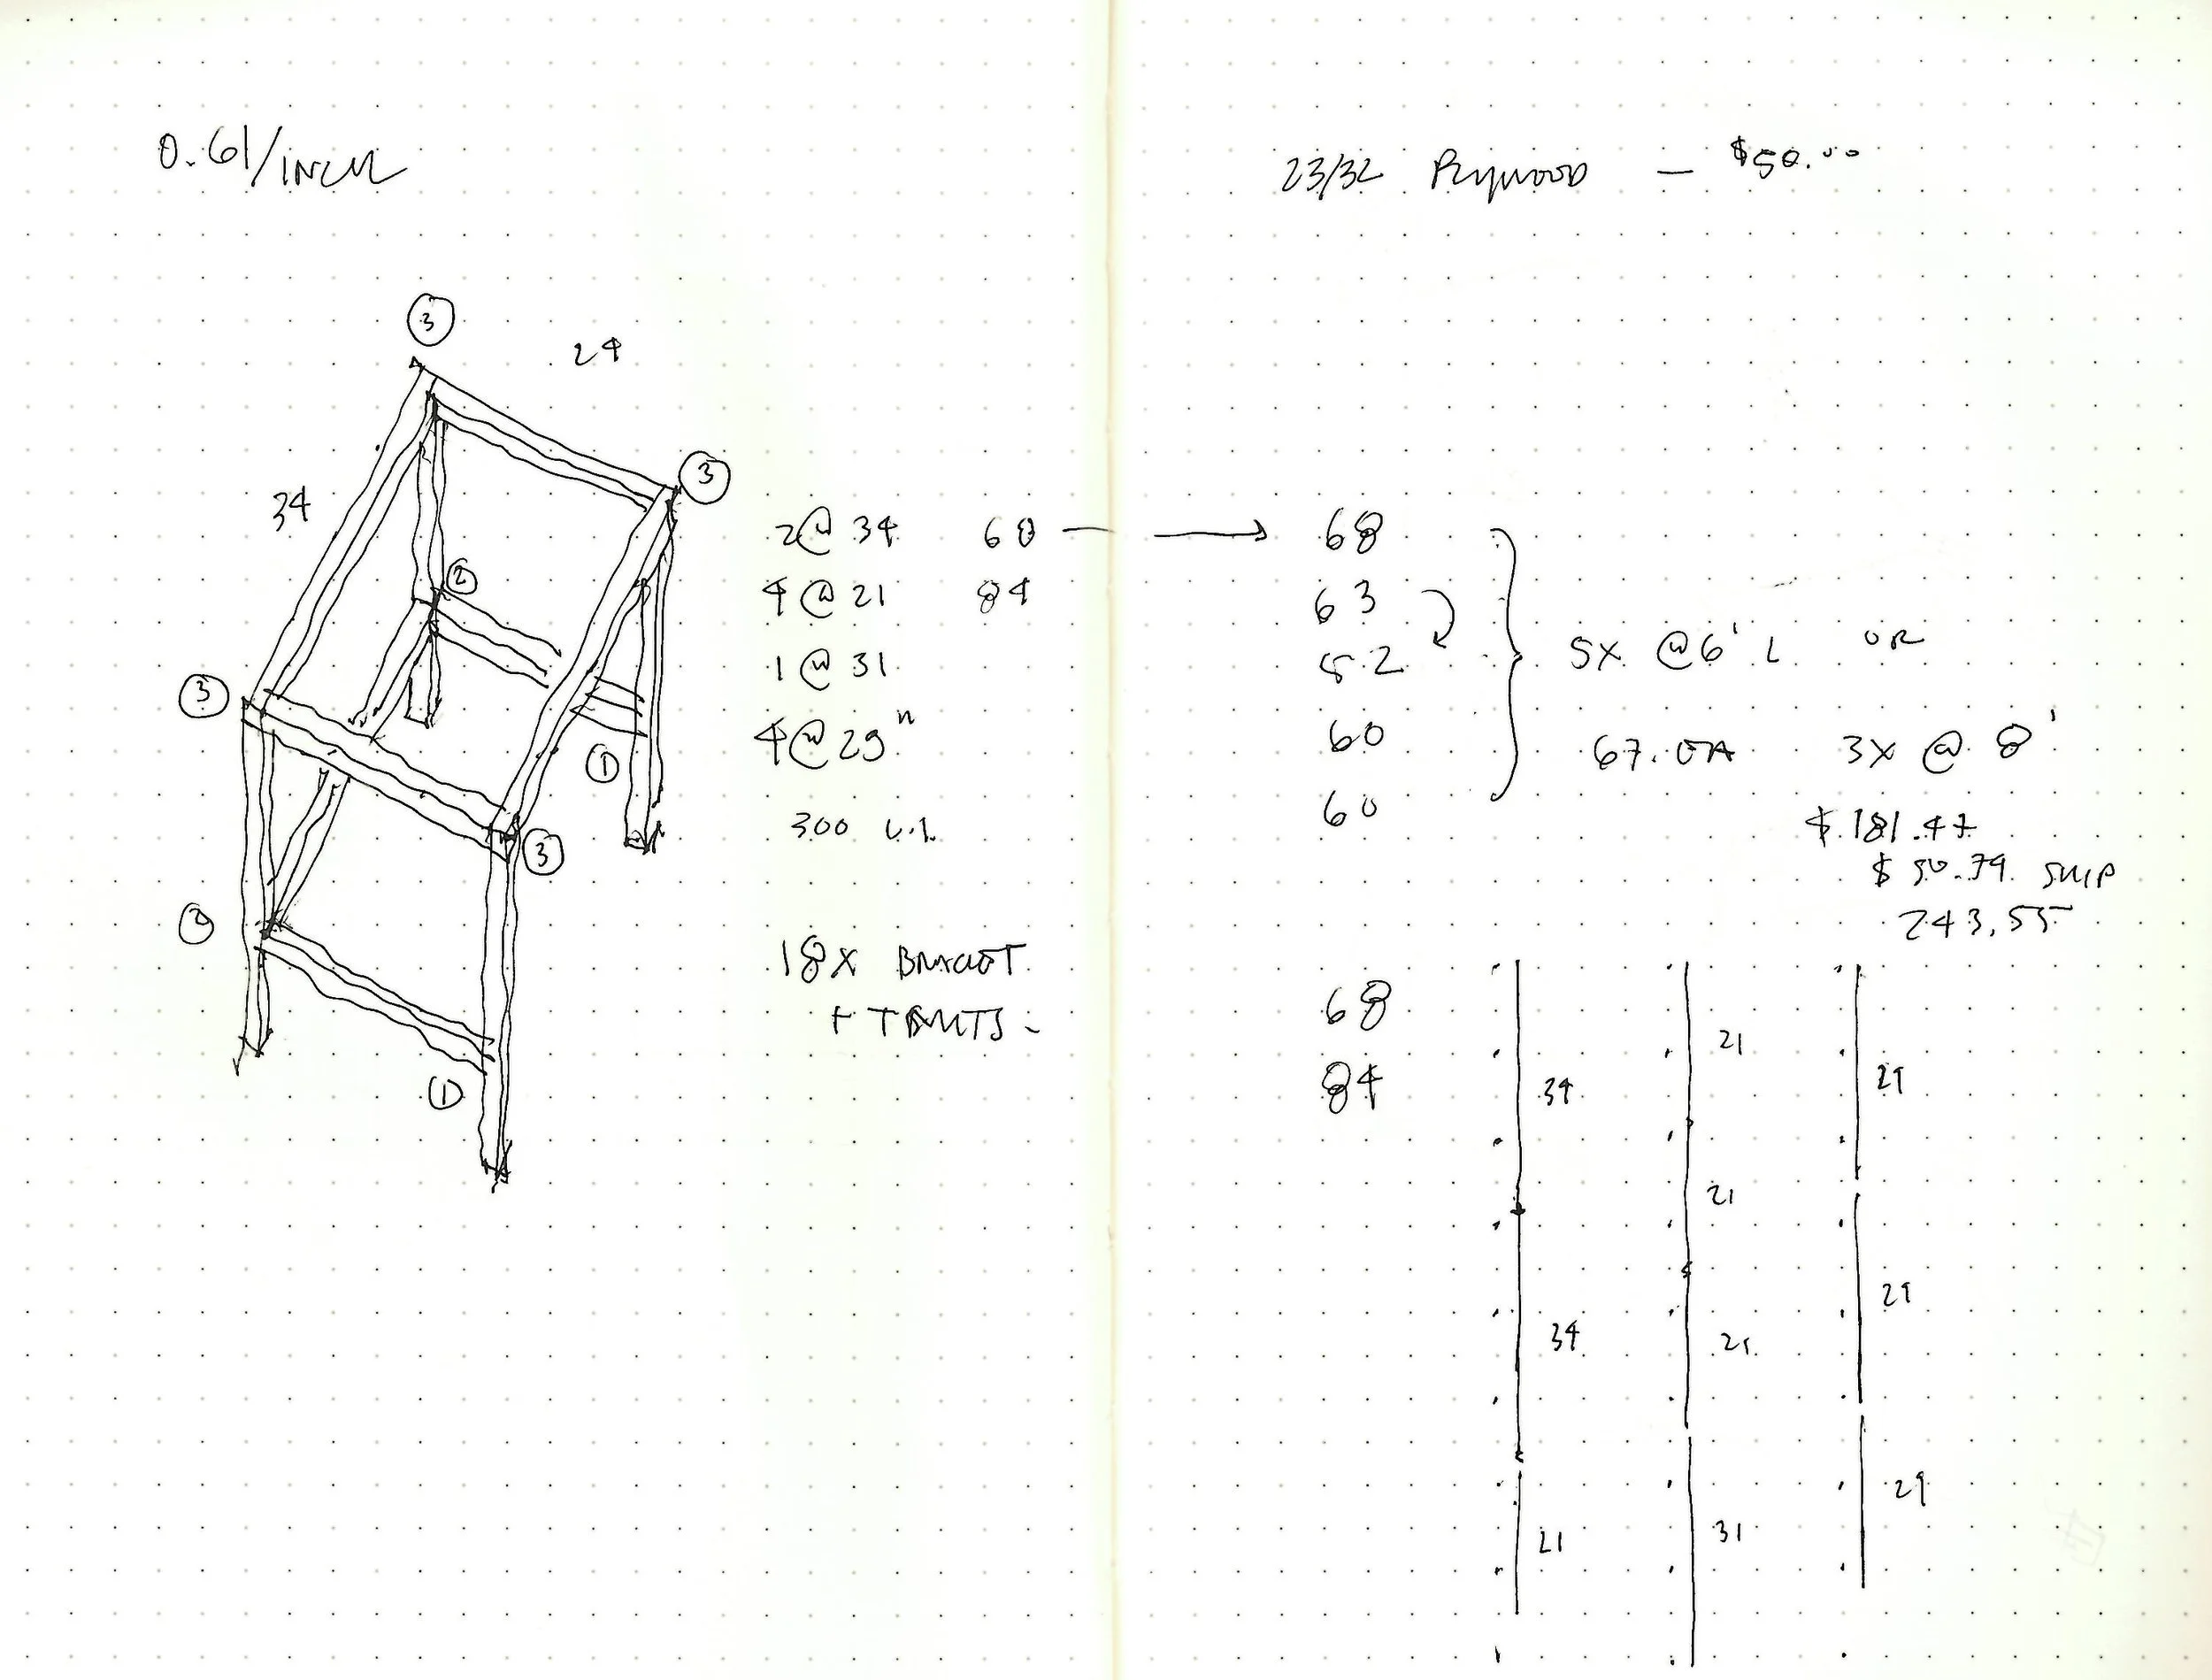 0.61/INCH
3
24
3
34
2
3
1
3
2
1
2@ 34 68
4@ 21 84
1@ 31
4@29"
300 L.I.
18X BRACKET
+ TNUTS
23/32 PLYWOOD — $50.00
68
63
52
60
60
5X @6' L OR
67.0A 3X @ 8'
$181.47
$50.79 SHIP
243.55
68
84
34
34
21
21
21
21
31
29
29
29